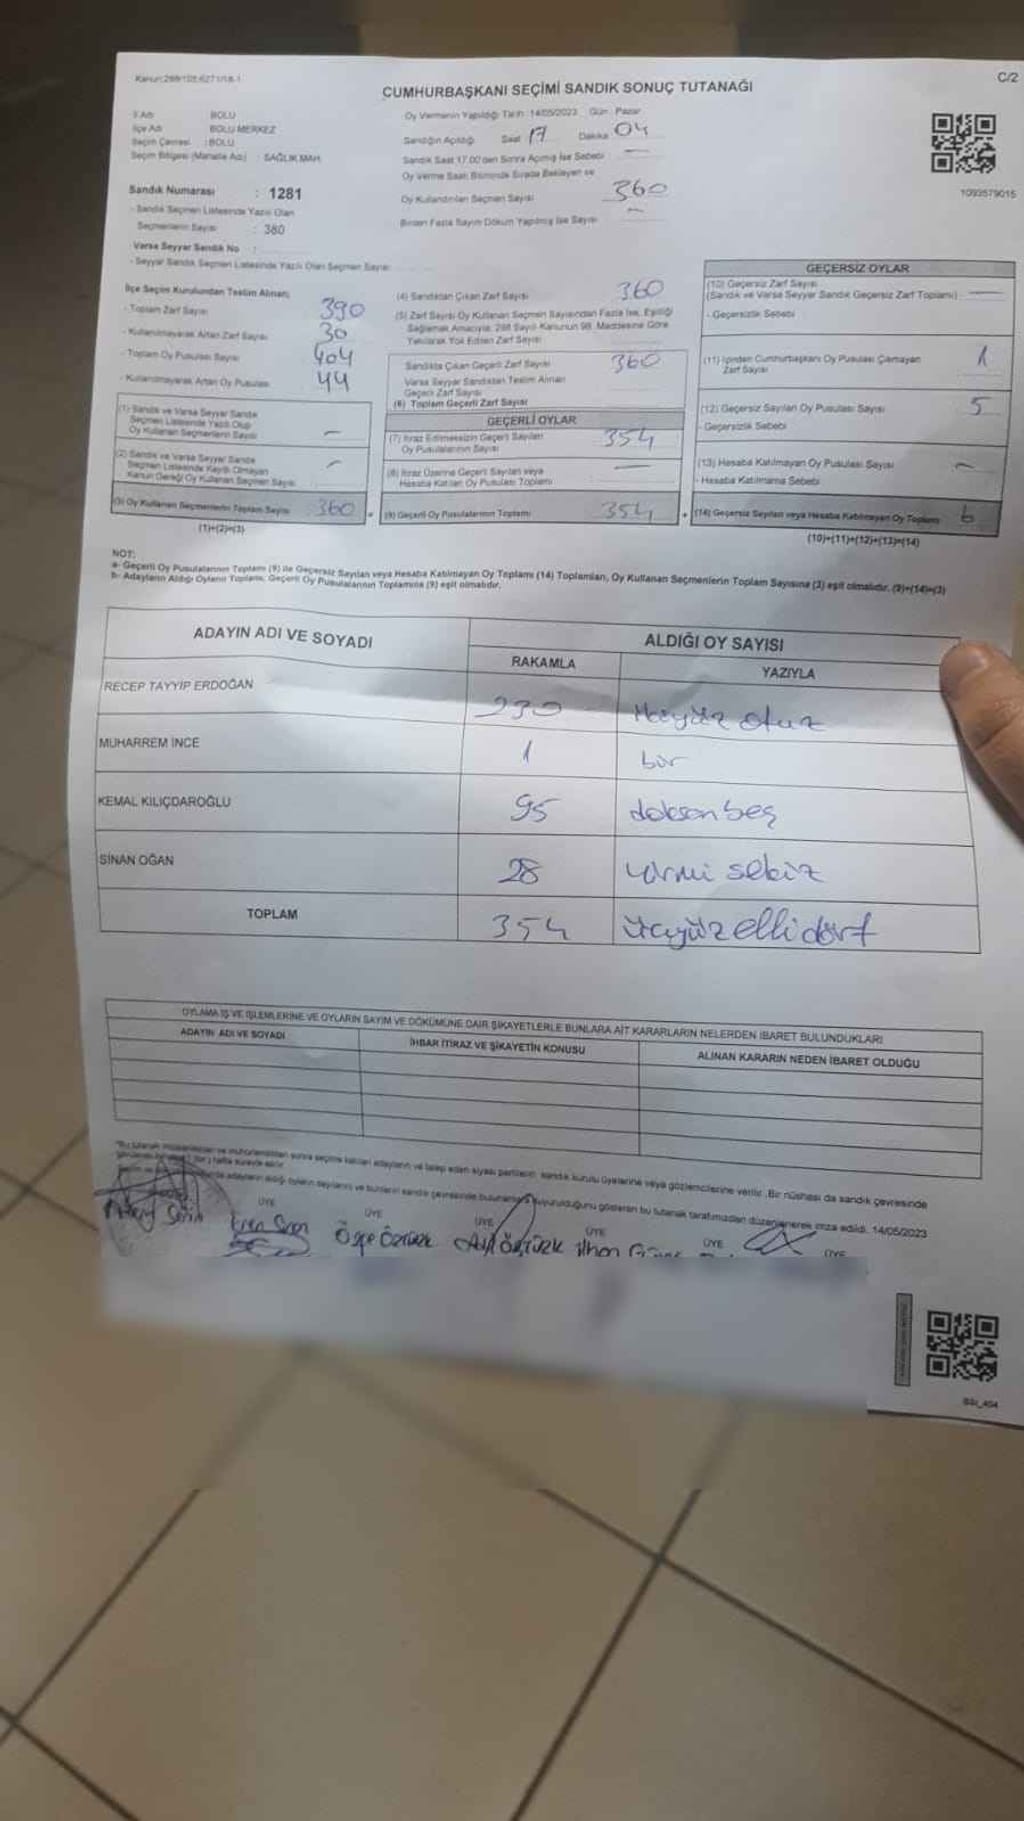 Kanun:298/105;6271/18-1
C/2
CUMHURBAŞKANI SEÇİMİ SANDIK SONUÇ TUTANAĞI
İl Adı : BOLU
İlçe Adı : BOLU MERKEZ
Seçim Çevresi : BOLU
Seçim Bölgesi (Mahalle Adı) : SAĞLIK MAH.
Sandık Numarası : 1281
- Sandık Seçmen Listesinde Yazılı Olan
Seçmenlerin Sayısı : 380
Varsa Seyyar Sandık No :
- Seyyar Sandık Seçmen Listesinde Yazılı Olan Seçmen Sayısı
Oy Vermenin Yapıldığı Tarih: 14/05/2023 Gün: Pazar
Sandığın Açıldığı Saat 17 Dakika 04
Sandık Saat 17.00'den Sonra Açılmış İse Sebebi —
Oy Verme Saati Bitiminde Sırada Bekleyen ve
Oy Kullandırılan Seçmen Sayısı 360
Birden Fazla Sayım Döküm Yapılmış İse Sayısı —
1093579015
İlçe Seçim Kurulundan Teslim Alınan;
- Toplam Zarf Sayısı 390
- Kullanılmayarak Artan Zarf Sayısı 30
- Toplam Oy Pusulası Sayısı 404
- Kullanılmayarak Artan Oy Pusulası 44
(1) Sandık ve Varsa Seyyar Sandık
Seçmen Listesinde Yazılı Olup
Oy Kullanan Seçmenlerin Sayısı —
(2) Sandık ve Varsa Seyyar Sandık
Seçmen Listesinde Kayıtlı Olmayan
Kanun Gereği Oy Kullanan Seçmen Sayısı —
(3) Oy Kullanan Seçmenlerin Toplam Sayısı 360
(1)+(2)=(3)
(4) Sandıktan Çıkan Zarf Sayısı 360
(5) Zarf Sayısı Oy Kullanan Seçmen Sayısından Fazla İse, Eşitliği
Sağlamak Amacıyla; 298 Sayılı Kanunun 98. Maddesine Göre
Yakılarak Yok Edilen Zarf Sayısı
Sandıkta Çıkan Geçerli Zarf Sayısı 360
Varsa Seyyar Sandıktan Teslim Alınan
Geçerli Zarf Sayısı
(6) Toplam Geçerli Zarf Sayısı
GEÇERLİ OYLAR
(7) İtiraz Edilmeksizin Geçerli Sayılan
Oy Pusulalarının Sayısı 354
(8) İtiraz Üzerine Geçerli Sayılan veya
Hesaba Katılan Oy Pusulası Toplamı —
(9) Geçerli Oy Pusulalarının Toplamı 354
GEÇERSİZ OYLAR
(10) Geçersiz Zarf Sayısı
(Sandık ve Varsa Seyyar Sandık Geçersiz Zarf Toplamı) —
- Geçersizlik Sebebi
(11) İçinden Cumhurbaşkanı Oy Pusulası Çıkmayan
Zarf Sayısı 1
(12) Geçersiz Sayılan Oy Pusulası Sayısı 5
- Geçersizlik Sebebi
(13) Hesaba Katılmayan Oy Pusulası Sayısı —
- Hesaba Katılmama Sebebi
(14) Geçersiz Sayılan veya Hesaba Katılmayan Oy Toplamı 6
(10)+(11)+(12)+(13)=(14)
NOT:
a- Geçerli Oy Pusulalarının Toplamı (9) ile Geçersiz Sayılan veya Hesaba Katılmayan Oy Toplamı (14) Toplamları, Oy Kullanan Seçmenlerin Toplam Sayısına (3) eşit olmalıdır. (9)+(14)=(3)
b- Adayların Aldığı Oyların Toplamı, Geçerli Oy Pusulalarının Toplamına (9) eşit olmalıdır.
ADAYIN ADI VE SOYADI
ALDIĞI OY SAYISI
RAKAMLA YAZIYLA
RECEP TAYYİP ERDOĞAN 230 ikiyüz otuz
MUHARREM İNCE 1 bir
KEMAL KILIÇDAROĞLU 95 doksan beş
SİNAN OĞAN 28 yirmi sekiz
TOPLAM 354 üçyüz elli dört
OYLAMA İŞ VE İŞLEMLERİNE VE OYLARIN SAYIM VE DÖKÜMÜNE DAİR ŞİKAYETLERLE BUNLARA AİT KARARLARIN NELERDEN İBARET BULUNDUKLARI
ADAYIN ADI VE SOYADI
İHBAR İTİRAZ VE ŞİKAYETİN KONUSU
ALINAN KARARIN NEDEN İBARET OLDUĞU
seçime katılan adayların ve talep eden siyasi partilerin sandık kurulu üyelerine veya gözlemcilerine verilir. Bir nüshası da sandık çevresinde
adayların aldığı oyların sayılarını ve bunların sandık çevresinde bulunanlara duyurulduğunu gösteren bu tutanak tarafımızdan düzenlenerek imza edildi. 14/05/2023
ÜYE ÜYE ÜYE ÜYE ÜYE ÜYE
Özge Öztürk
Öztürk
İlhan